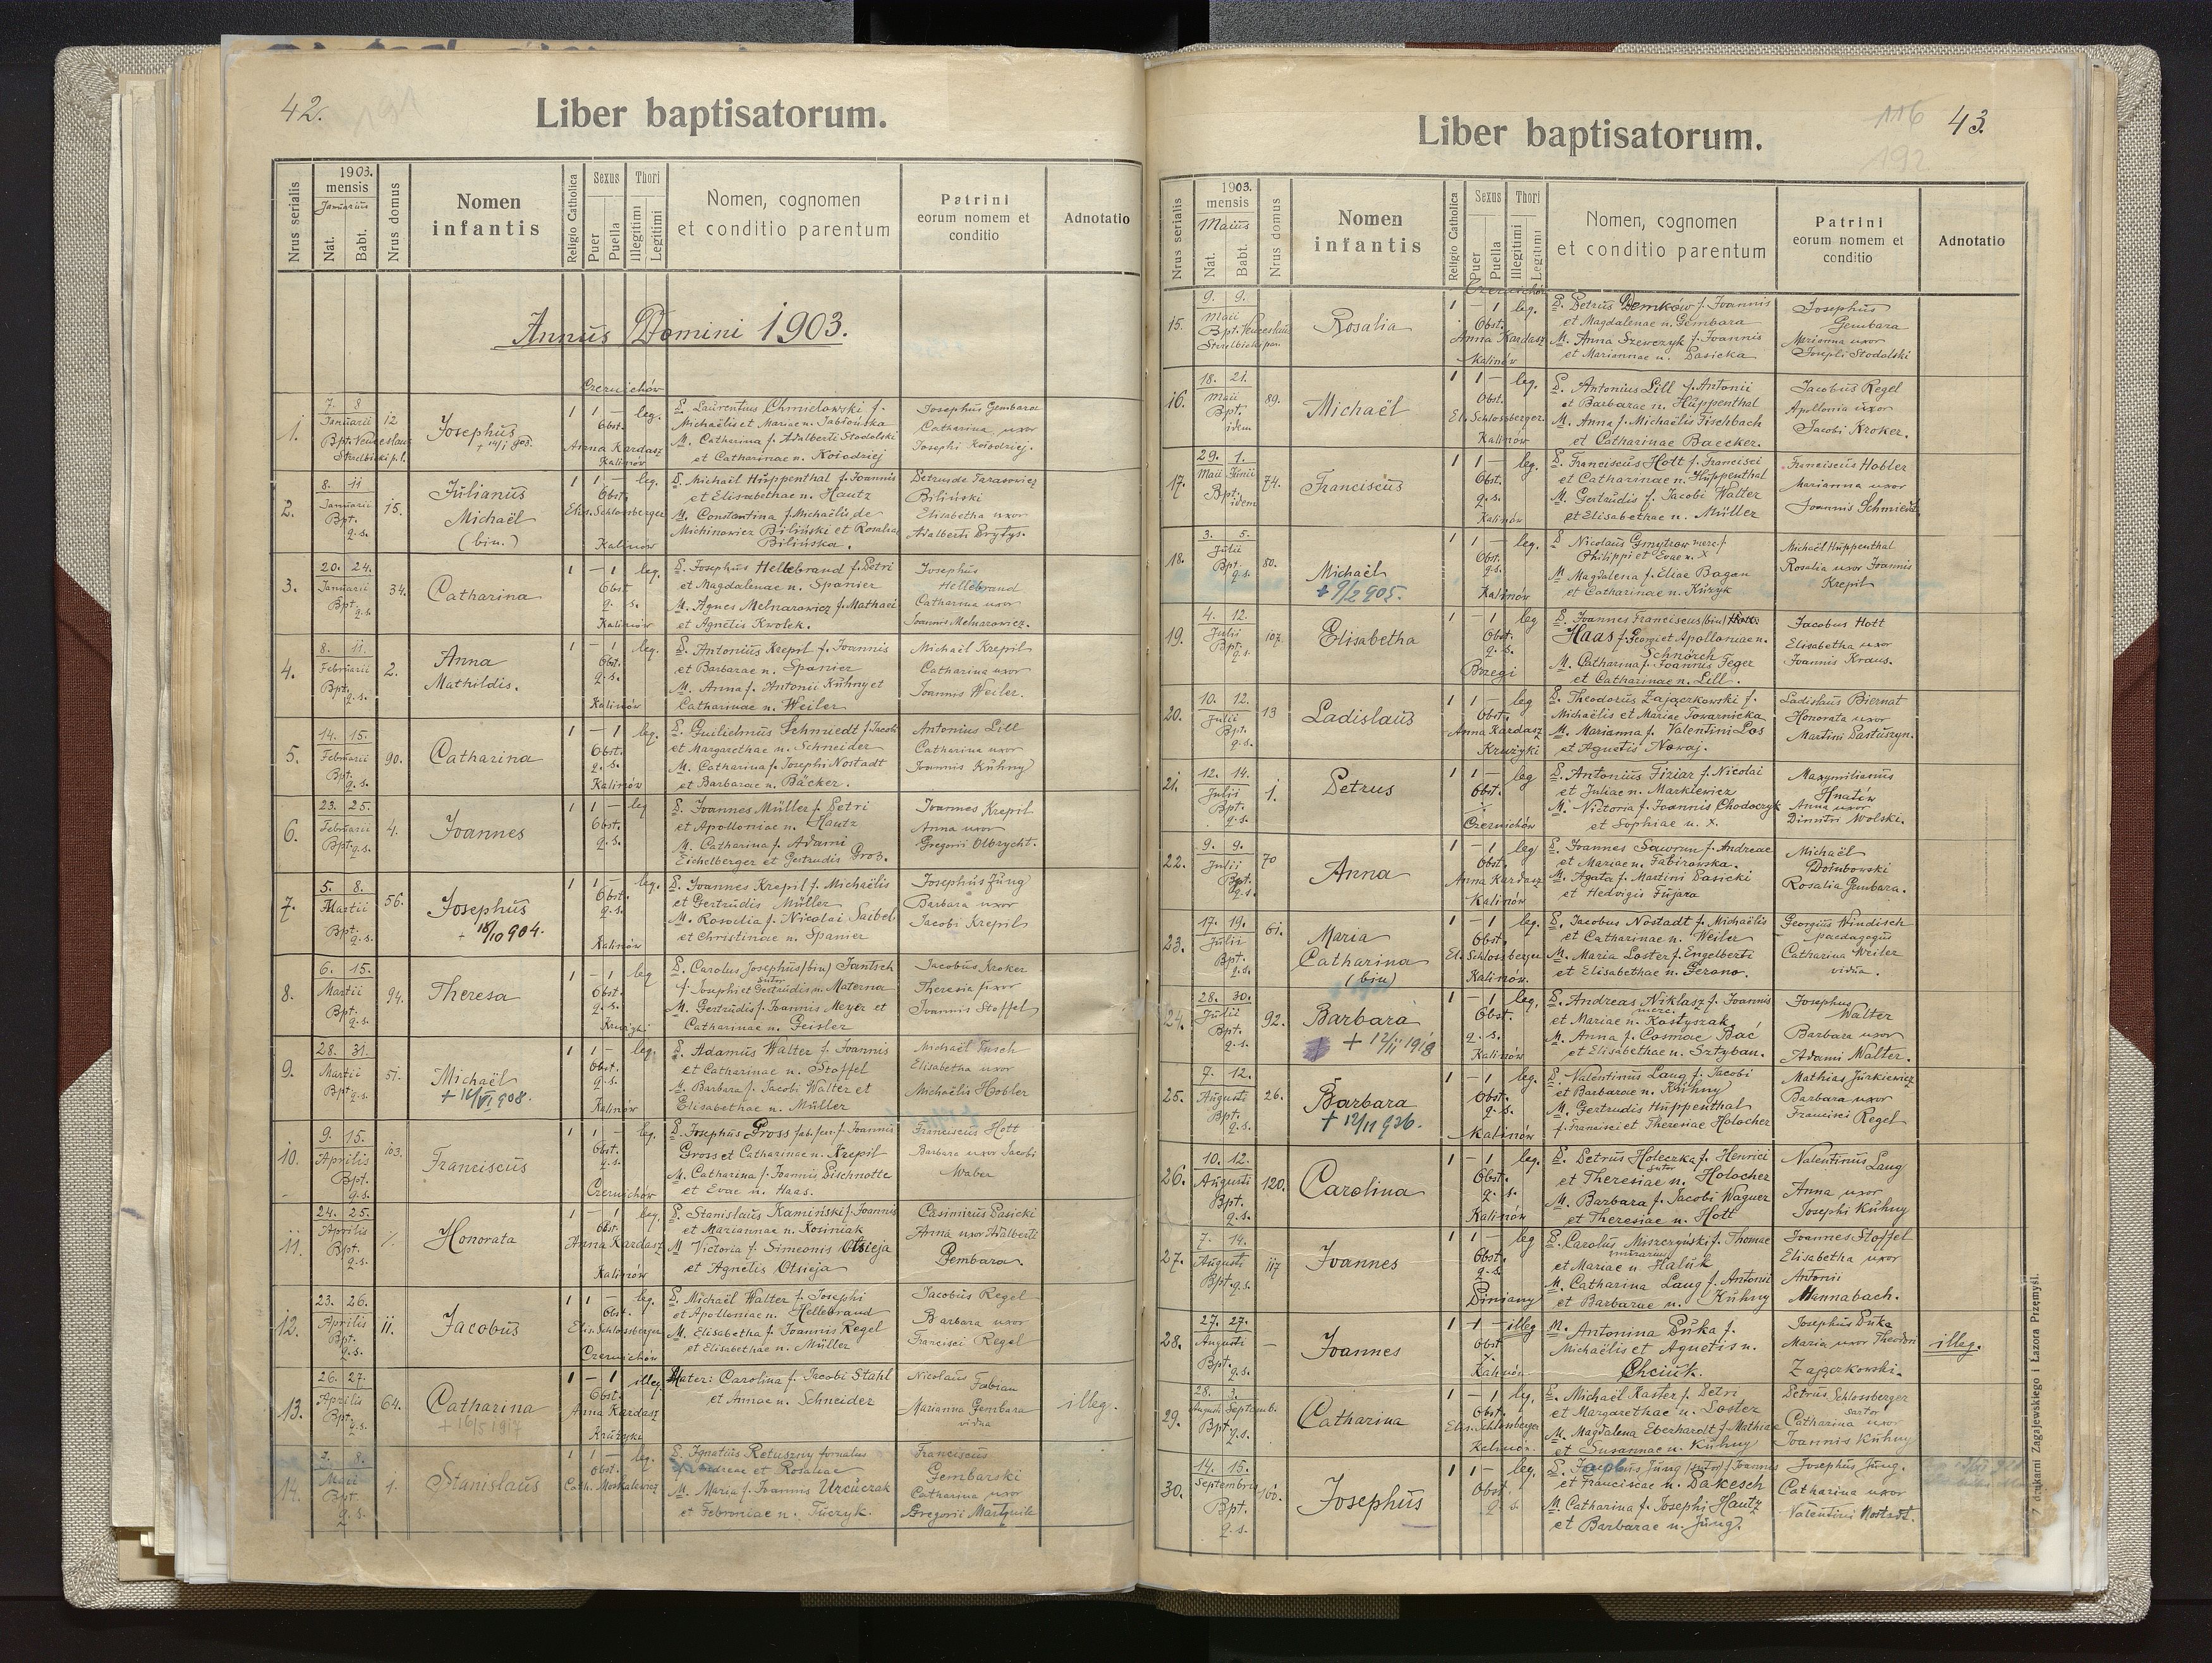 42.
Liber baptisatorum.
Nrus serialis
1903.
mensis
Januarius
Nat.
Babt.
Nrus domus
Nomen
infantis
Religio Catholica
Sexus
Puer
Puella
Thori
Illegitimi
Legitimi
Nomen, cognomen
et conditio parentum
Patrini
eorum nomem et
conditio
Adnotatio
Annus Domini 1903.
Czernichów
1.
7. 8
Januarii
Bpt. Venceslaus
Strzelbicki p.l.
12
Josephus
+ 14/1 903.
1 1 – leg.
Obst.
Anna Kardasz
P. Laurentius Chmielowski f.
Michaëlis et Mariae n. Jabłońska
M. Catharina f. Adalberti Stodolski
et Catharinae n. Kołodziej
Josephus Gembara
Catharina uxor
Josephi Kołodziej.
Kalinów
2.
8. 11
Januarii
Bpt.
q.s.
15.
Julianus
Michaël
(bin.)
1 1 – leg.
Obst.
Elis. Schlossberger
P. Michaël Huppenthal f. Joannis
et Elisabethae n. Hautz
M. Constantina f. Michaëlis de
Michinowicz Biliński et Rosalia
Bilińska.
Petrus de Tarasowicz
Biliński
Elisabetha uxor
Adalberti Brytys.
Kalinów
3.
20. 24.
Januarii
Bpt. q.s.
34.
Catharina
1 – 1 leg.
Obst
q. s.
P. Josephus Hellebrand f. Petri
et Magdalenae n. Spanier
M. Agnes Melnarowicz f. Mathaei
et Agnetis Kwolek.
Josephus
Hellebrand
Catharina uxor
Joannis Melnarowicz.
Kalinów
4.
8. 11.
Februarii
Bpt. q.s.
2.
Anna
Mathildis.
1 – 1 leg.
Obst.
q.s.
P. Antonius Krepil f. Joannis
et Barbarae n. Spanier
M. Anna f. Antonii Kühny et
Catharinae n. Weiler
Michaël Krepil
Catharina uxor
Joannis Weiler.
Kalinów
5.
14. 15.
Februarii
Bpt.
q.s.
90.
Catharina
1 – 1 leg.
Obst.
q.s.
P. Guilielmus Schmiedt f. Jacobi
et Margarethae n. Schneider
M. Catharina f. Josephi Nostadt
et Barbarae n. Bäcker.
Antonius Lill
Catharina uxor
Joannis Kühny
Kalinów
6.
23. 25.
Februarii
Bpt. q.s.
4.
Joannes
1 1 – leg
Obst.
q.s.
P. Joannes Müller f. Petri
et Apolloniae n. Hautz
M. Catharina f. Adami
Eichelberger et Gertrudis Gros.
Joannes Krepil
Anna uxor
Gregorii Olbrycht.
7.
5. 8.
Martii
Bpt.
q.s.
56.
Josephus
+ 18/10 904.
1 1 – leg.
Obst.
q.s.
P. Joannes Krepil f. Michaëlis
et Gertrudis Müller
M. Rosalia f. Nicolai Saibel
et Christinae n. Spanier
Josephus Jung
Barbara uxor
Jacobi Krepil
Kalinów
8.
6. 15.
Martii
Bpt.
q.s.
94.
Theresa
1 – 1 leg
Obst.
q.s.
P. Carolus Josephus (bin) Jantsch
sutor
f. Josephi et Gertrudis n. Materna
M. Gertrudis f. Joannis Meyer et
Catharinae n. Geisler
Jacobus Kroker
Theresia uxor
Joannis Stoffel
9.
28. 31.
Martii
Bpt. q.s.
51.
Michaël
+ 16/VI 908.
1 1 – leg.
Obst.
q.s.
P. Adamus Walter f. Joannis
et Catharinae n. Stoffel
M. Barbara f. Jacobi Walter et
Elisabethae n. Müller
Michaël Tusch
Elisabetha uxor
Michaëlis Hobler
Kalinów
10.
9. 15.
Aprilis
Bpt.
q.s.
103.
Franciscus
1 1 – leg.
Obst.
q.s.
P. Josephus Gross f. Joannis
Gross et Catharinae n. Krepil
M. Catharina f. Joannis Dischnotte
et Evae n. Haas.
Franciscus Hott
Barbara uxor Jacobi
Waber
Czernichów
11.
24. 25.
Aprilis
Bpt.
q.s.
Honorata
1 – 1 leg.
Obst.
Anna Kardasz
P. Stanislaus Kamiński f. Joannis
et Mariannae n. Kosiniak
M Victoria f. Simeonis Otsieja
et Agnetis Otsieja
Casimirus Pasicki
Anna uxor Adalberti
Gembara.
Kalinów
12.
23. 26.
Aprilis
Bpt.
q.s.
11.
Jacobus
1 1 – leg.
Obst.
Elis. Schlossberger
P. Michaël Walter f. Josephi
et Apolloniae n. Hellebrand
M. Elisabetha f. Joannis Regel
et Elisabethae n. Müller
Jacobus Regel
Barbara uxor
Francisci Regel
Czernichów
13.
26. 27.
Aprilis
Bpt.
q.s.
64.
Catharina
+ 16/5 1917
1 – 1 illeg.
Obst.
Anna Kardasz
Mater: Carolina f. Jacobi Stahl
et Annae n. Schneider
Nicolaus Fabian
Marianna Gembara
vidua
illeg.
Krużyki
14.
7. 8.
Maii
Bpt.
q.s.
1.
Stanislaus
1 1 – leg.
Obst.
Cath. Moskalewicz
P. Ignatius Retuszny fornalus
f. Andreae et Rosaliae
M. Maria f. Joannis Urcuczak
et Febroniae n. Tuczyk.
Franciscus
Gembarski
Catharina uxor
Gregorii Martynik
116
192
43.
Liber baptisatorum.
Nrus serialis
1903.
mensis
Maius
Nat.
Babt.
Nrus domus
Nomen
infantis
Religio Catholica
Sexus
Puer
Puella
Thori
Illegitimi
Legitimi
Nomen, cognomen
et conditio parentum
Patrini
eorum nomem et
conditio
Adnotatio
Czernichów
15.
9. 9.
Maii
Bpt. Venceslaus
Rosalia
1 – 1 leg.
Obst.
Anna Kardasz
P. Petrus Demków f. Joannis
et Magdalenae n. Gembara
M. Anna Szewczyk f. Joannis
et Mariannae n. Pasicka
Josephus
Gembara
Marianna uxor
Josephi Stodolski
Kalinów
16.
18. 21.
Maii
Bpt.
idem
89.
Michaël
1 1 – leg.
Obst.
El. Schlossberger.
P. Antonius Lill f. Antonii
et Barbarae n. Huppenthal
M. Anna f. Michaëlis Fischbach
et Catharinae Baecker.
Jacobus Regel
Apollonia uxor
Jacobi Kroker.
Kalinów
17.
29. 1.
Maii Junii
Bpt.
idem
74.
Franciscus
1 1 – leg.
Obst.
q.s.
P. Franciscus Hott f. Francisci
et Catharinae n. Huppenthal
M. Gertrudis f. Jacobi Walter
et Elisabethae n. Müller
Franciscus Hobler
Marianna uxor
Joannis Schmiedt
Kalinów
18.
3. 5.
Julii
Bpt.
q.s.
80.
Michaël
+ 9/2 905.
1 1 – leg.
Obst.
q.s.
P Nicolaus Gmytrow merc. f.
Philippi et Evae n. X
M Magdalena f. Eliae Bagan
et Catharinae n. Kużyk
Michaël Huppenthal
Rosalia uxor Joannis
Krepil
Kalinów
19.
4. 12.
Julii
Bpt.
q.s.
107.
Elisabetha
1 – 1 leg
Obst.
q.s.
P. Joannes Franciscus (bin)
Haas f. Georgi et Apolloniae n.
Schnörch
M. Catharina f. Joannis Feger
et Catharinae n. Lill.
Jacobus Hott
Elisabetha uxor
Joannis Kraus.
Brzegi
20.
10. 12.
Julii
Bpt.
q.s.
13
Ladislaus
1 1 – leg
Obst.
Anna Kardasz
P. Theodorus Zajączkowski f.
Michaëlis et Mariae Towarnicka
M. Marianna f. Valentini Los
et Agnetis Nowaj.
Ladislaus Biernat
Honorata uxor
Martini Pastuszyn.
Krużyki
21.
12. 14.
Julii
Bpt.
q.s.
1.
Petrus
1 1 – leg
Obst.
P. Antonius Fiziar f. Nicolai
et Juliae n. Markiewicz
M. Victoria f. Joannis Chodaczyk
et Sophiae n. X.
Maxymilianus
Hnatów
Anna uxor
Dimitri Wolski.
Czernichów
22.
9. 9.
Julii
Bpt.
q.s.
70
Anna
1 – 1 leg
Obst.
Anna Kardasz
P. Joannes Sawrun f. Andreae
et Mariae n. Fabirowska.
M. Agata f. Martini Pasicki
et Hedvigis Fujara
Michaël
Dołubowski
Rosalia Gembara.
Kalinów
23.
17. 19.
Julii
Bpt.
q.s.
61.
Maria
Catharina
(bin)
1 – 1 leg.
Obst.
El. Schlossberger
P. Jacobus Nostadt f. Michaëlis
et Catharinae n. Weiler
M. Maria Loster f. Engelberti
et Elisabethae n. Gerono.
Georgius Windisch
paedagogus
Catharina Weiler
vidua.
Kalinów.
24.
28. 30.
Julii
Bpt.
q.s.
92.
Barbara
+ 12/II 1918
1 – 1 leg.
Obst.
q.s.
P. Andreas Niklasz f. Joannis
merc.
et Mariae n. Kostyszak
M. Anna f. Cosmae Bać
et Elisabethae n. Sztyban.
Josephus
Walter
Barbara uxor
Adami Walter.
Kalinów
25.
7. 12.
Augusti
Bpt.
q.s.
26.
Barbara
+ 12/11 926.
1 – 1 leg.
Obst.
q.s.
P. Valentinus Laug f. Jacobi
et Barbarae n. Kühny
M. Gertrudis Huppenthal
f. Francisci et Theresiae Holocher
Mathias Jurkiewicz
Barbara uxor
Francisci Regel
Kalinów
26.
10. 12.
Augusti
Bpt.
q.s.
120.
Carolina
1 – 1 leg.
Obst.
q.s.
P. Petrus Holeczka f. Henrici
sutor
et Theresiae n. Holocher
M. Barbara f. Jacobi Wagner
et Theresiae n. Hott
Valentinus Laug
Anna uxor
Josephi Kühny
Kalinów
27.
7. 14.
Augusti
Bpt. q.s.
117
Joannes
1 1 – leg
Obst.
q.s.
P. Carolus Miszczyński f. Thomae
murarius
et Mariae n. Haluk
M. Catharina Laug f. Antonii
et Barbarae n. Kühny
Joannes Stoffel
Elisabetha uxor
Antonii
Mannabach.
Biniany
28.
27. 27.
Augusti
Bpt.
q.s.
–
Joannes
1 1 – illeg
Obst
M. Antonina Duka f.
Michaëlis et Agnetis n.
Chciuk.
Josephus Duka
Maria uxor Theodori
Zajączkowski.
illeg.
Kalinów
29.
28. 3.
Augusti Septemb.
Bpt.
q.s.
Catharina
1 – 1 leg.
Obst.
Elis. Schlossberger
P. Michaël Kaster f. Petri
et Margarethae n. Loster
M. Magdalena Eberhardt f. Mathiae
et Susannae n. Kühny
Petrus Schlossberger
sartor
Catharina uxor
Joannis Kühny
Kalinów.
30.
14. 15.
Septembris
Bpt.
q.s.
100.
Josephus
1 1 – leg.
Obst.
q. s.
P. Jacobus Jung (sutor) f. Joannis
et Franciscae n. Dakesch
M. Catharina f. Josephi Hautz
et Barbarae n. Jung.
Josephus Jung.
Catharina uxor
Valentini Nostadt.
Z drukarni Zagajewskiego i Łazora Przemyśl.